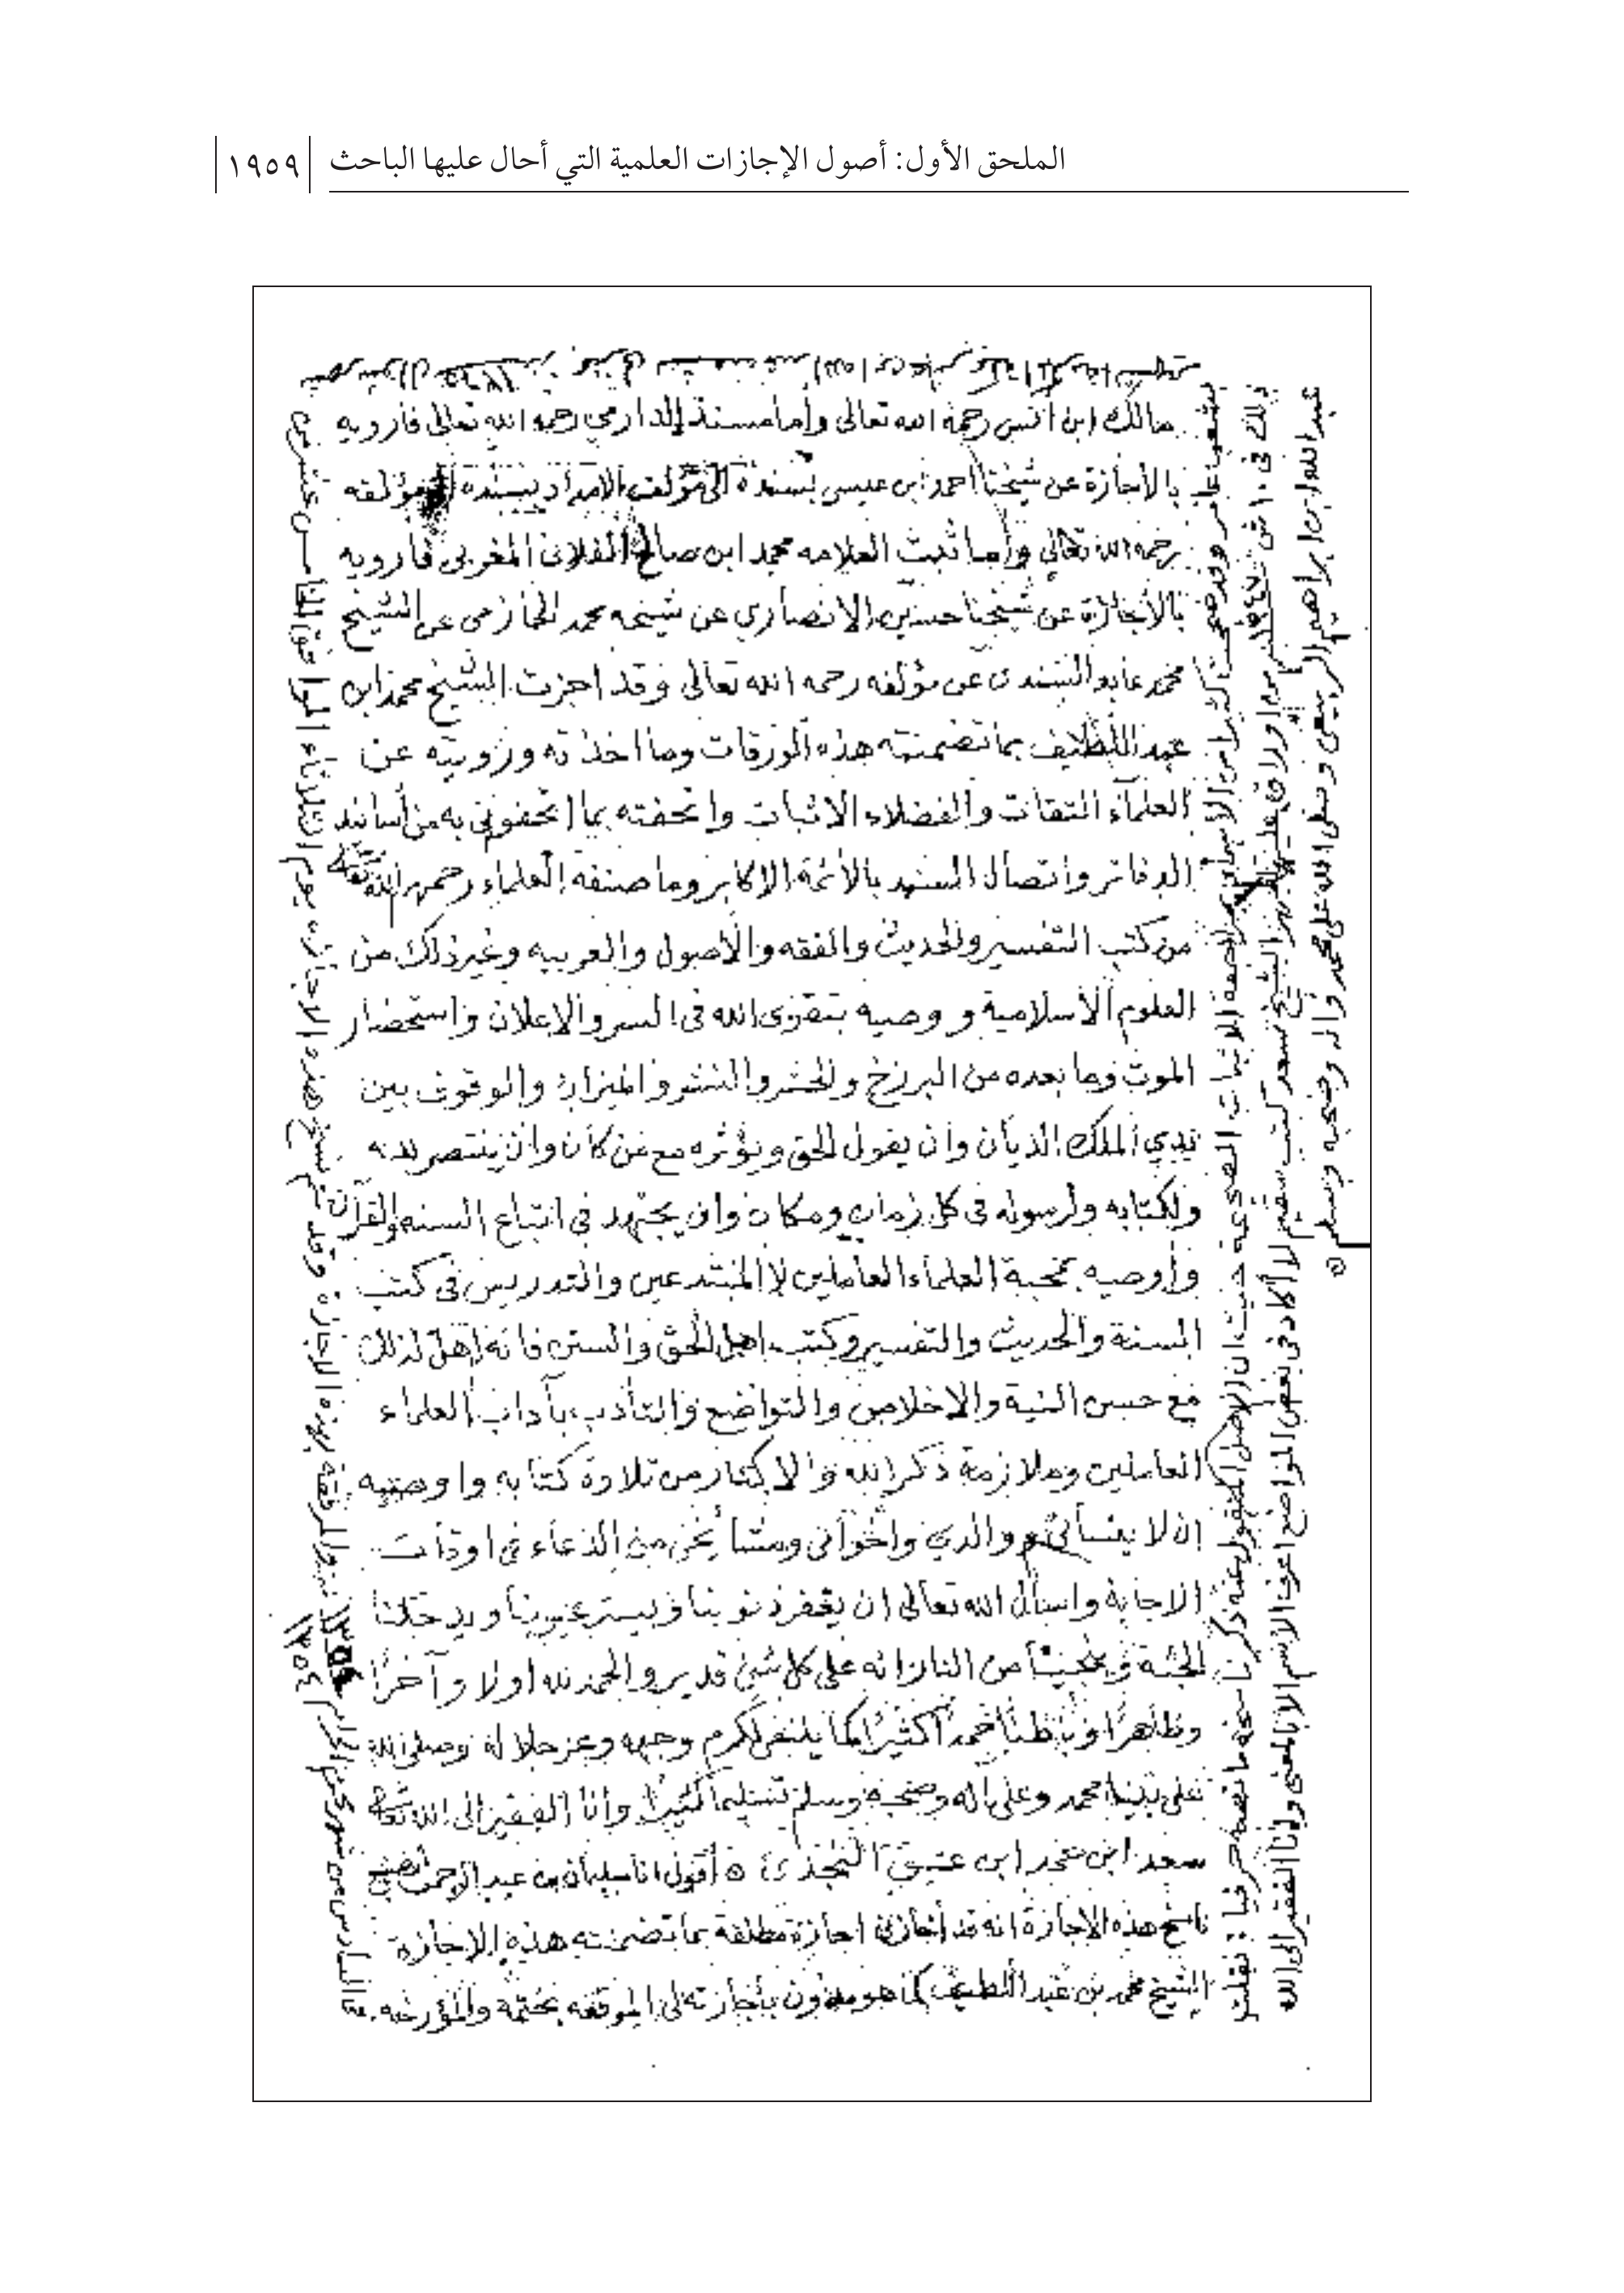 الملحق الأول: أصول الإجازات العلمية التي أحال عليها الباحث ١٩٥٩
مالك ابن انس رحمه الله تعالى وأما مسند الدارمي رحمه الله تعالى فارويه
بالأجازة عن شيخنا احمد ابن عيسى بسنده الى مؤلف الامداد بسنده الى مؤلفه
رحمه الله تعالى وأما ثبت العلامه محمد ابن صالح الفلاني المغربي فارويه
بالأجازة عن شيخنا حسين الانصاري عن شيخه محمد الحازمي عن الشيخ
محمد عابد السندي عن مؤلفه رحمه الله تعالى وقد اجزت الشيخ محمد ابن
عبد اللطيف بما تضمنته هذه الورقات وما اخذته ورويته عن
العلماء الثقات والفضلاء الاثبات واتحفته بما اتحفوني به من أسانيد
الدفاتر واتصال السند بالأئمة الاكابر وما صنفه العلماء رحمهم الله تعالى
من كتب التفسير والحديث والفقه والأصول والعربيه وغير ذلك من
العلوم الأسلامية ووصيه بتقوى الله في السر والاعلان واستحضار
الموت وما بعده من البرزخ والحشر والنشر والميزان والوقوف بين
يدي الملك الديان وان يقول الحق ويؤثره مع من كان وان ينتصر لله
ولكتابه ولرسوله في كل زمان ومكان وان يجتهد في اتباع السنه والقرآن
وأوصيه بمحبة العلماء العاملين لا المبتدعين والتدريس في كتب
السنة والحديث والتفسير وكتب اهل الحق والسنن فانه اهل لذلك
مع حسن النية والاخلاص والتواضع والتأدب بآداب العلماء
العاملين وملازمة ذكر الله والاكثار من تلاوة كتابه واوصيه
ان لا ينساني ووالدي واخواني ومشايخي من الدعاء في اوقات
الاجابة واسأل الله تعالى ان يغفر ذنوبنا ويستر عيوبنا ويدخلنا
الجنة وينجينا من النار انه على كل شي قدير والحمد لله اولا وآخرا
وظاهرا وباطنا حمدا كثيرا كما ينبغي لكرم وجهه وعز جلاله وصلى الله
على نبينا محمد وعلى اله وصحبه وسلم تسليما كثيرا وانا الفقير الى الله تعالى
سعد ابن محمد ابن عتيق النجدي ه أقول انا سليمان بن عبد الرحمن
ناسخ هذه الاجازة انه قد أجازني اجازة مطلقة بما تضمنته هذه الاجازه
الشيخ محمد بن عبد اللطيف كما هو مدون بأجازته لي الموقعه بختمه والمؤرخه
السادس من شهر محرم الحرام ١٣٥٤
وقد تم نسخ هذه الاجازه يوم الثلاثاء الموافق الخامس عشر من
حيث ان الاصل المنقول عنه ذكر ناسخه ما نصه حرفيا: نقلت
ذلك في ١٠ ش ١٣٤٧
الشيخ سعد كتب سقيم لا أكاد في بعض المواضع اعرف الاسم الا بالمعنى وانا الفقير الى الله
عبد الله ابن ابراهيم الربيعي وصلى الله على محمد واله وصحبه وسلم ه